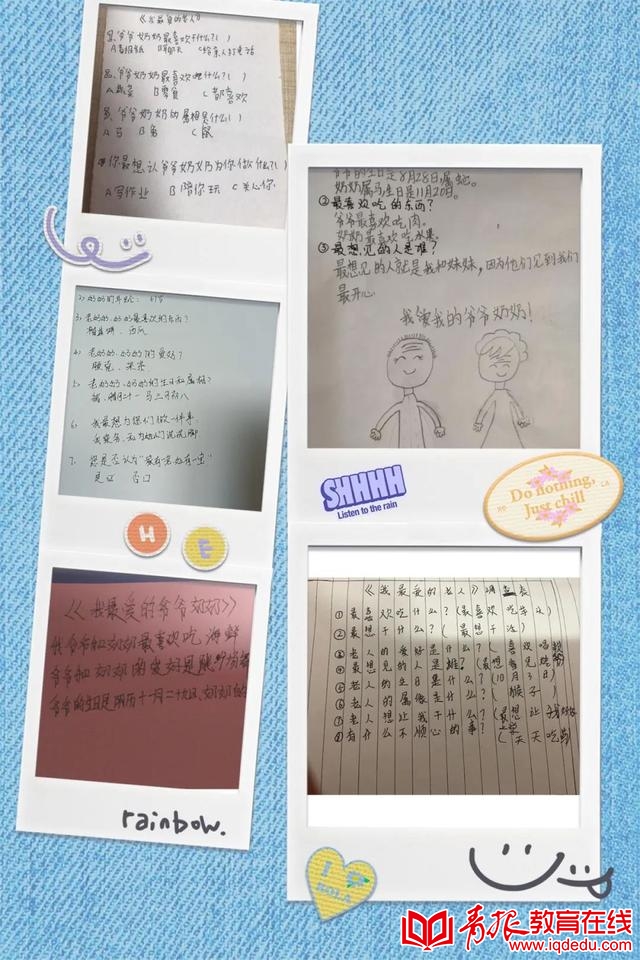 《我最爱的老人》
爷爷奶奶最喜欢干什么？（ ）
A看报纸 B聊天 C给亲人打电话
爷爷奶奶最喜欢吃什么？（ ）
A蔬菜 B零食 C都喜欢
爷爷奶奶的属相是什么（ ）
A马 B兔 C鼠
你最想让爷爷奶奶为你做什么？（ ）
A写作业 B陪你玩 C关心你
3、老奶奶、奶奶最喜欢的东西？
4、老奶奶、奶奶的爱好？
5、老奶奶、奶奶的生日和属相？
6、我最想为您们做一件事
7、您是否认为“家有一老如有一宝”
是□ 否□
H E
《我最爱的爷爷奶奶》
我爷爷和奶奶最喜欢吃海鲜
爷爷和奶奶的爱好是跳
爷爷的生日是阴历十一月二十九日、奶奶的
rainbow.
爷爷的生日是8月28日,属蛇。
奶奶属马,生日是11月20日。
②最喜欢吃的东西？
爷爷最喜欢吃肉。
奶奶最喜欢吃水果。
③最想见的人是谁？
最想见的人就是我和妹妹，因为他们见到我们
最开心。
我爱我的爷爷奶奶！
SHHHH
Listen to the rain
Do nothing,
Just chill
《我最爱的老人》调查表
①最喜欢吃什么？（最喜欢吃
②最想干什么？（最想干活）
③老人的爱好是什么？（喜欢唱歌
④最想见的人是谁？（最想看见
⑤老人的生日是什么？（10月3日）
⑥老人的属像是什么？（猴子）
⑦老人想让我干什么？（最想让我
⑧有什么不顺心的事？（天天吃药
青报教育在线
www.iqdedu.com